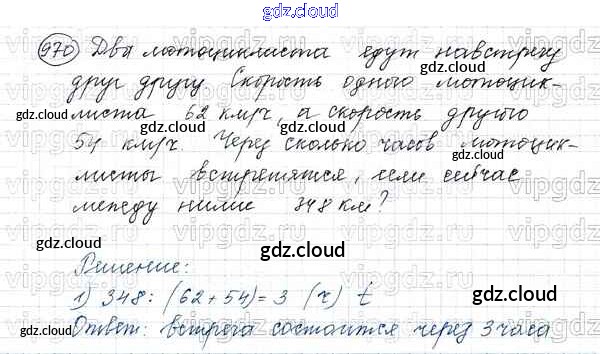 gdz.cloud
970 Два мотоциклиста едут навстречу
gdz.cloud
друг другу. Скорость одного мотоцик-
gdz.cloud
листа 62 км/ч, а скорость другого
54 км/ч. Через сколько часов мотоцик-
gdz.cloud
листы встретятся, если сейчас
между ними 348 км?
gdz.cloud
gdz.cloud
Решение:
gdz.cloud
1) 348 : (62 + 54) = 3 (ч) t
Ответ: встреча состоится через 3 часа
gdz.cloud